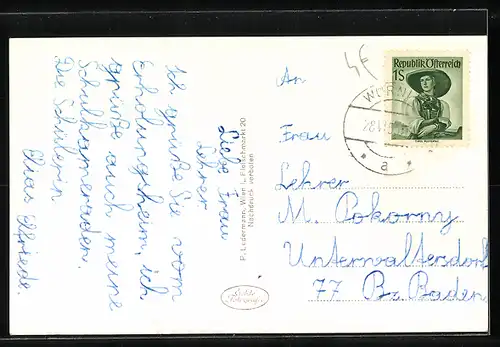 Liebe Frau
Lehrer
Ich grüße Sie vom
Erholungsheim, ich
grüße auch meine
Schulkameraden.
Die Schülerin
Elfriede.
P. Ledermann, Wien I., Fleischmarkt 20
Nachdruck verboten
Echte
4€
Republik Österreich
1S
a
An
Frau
Lehrer
M. Pokorny
Unterwaltersdorf
77 Bz. Baden